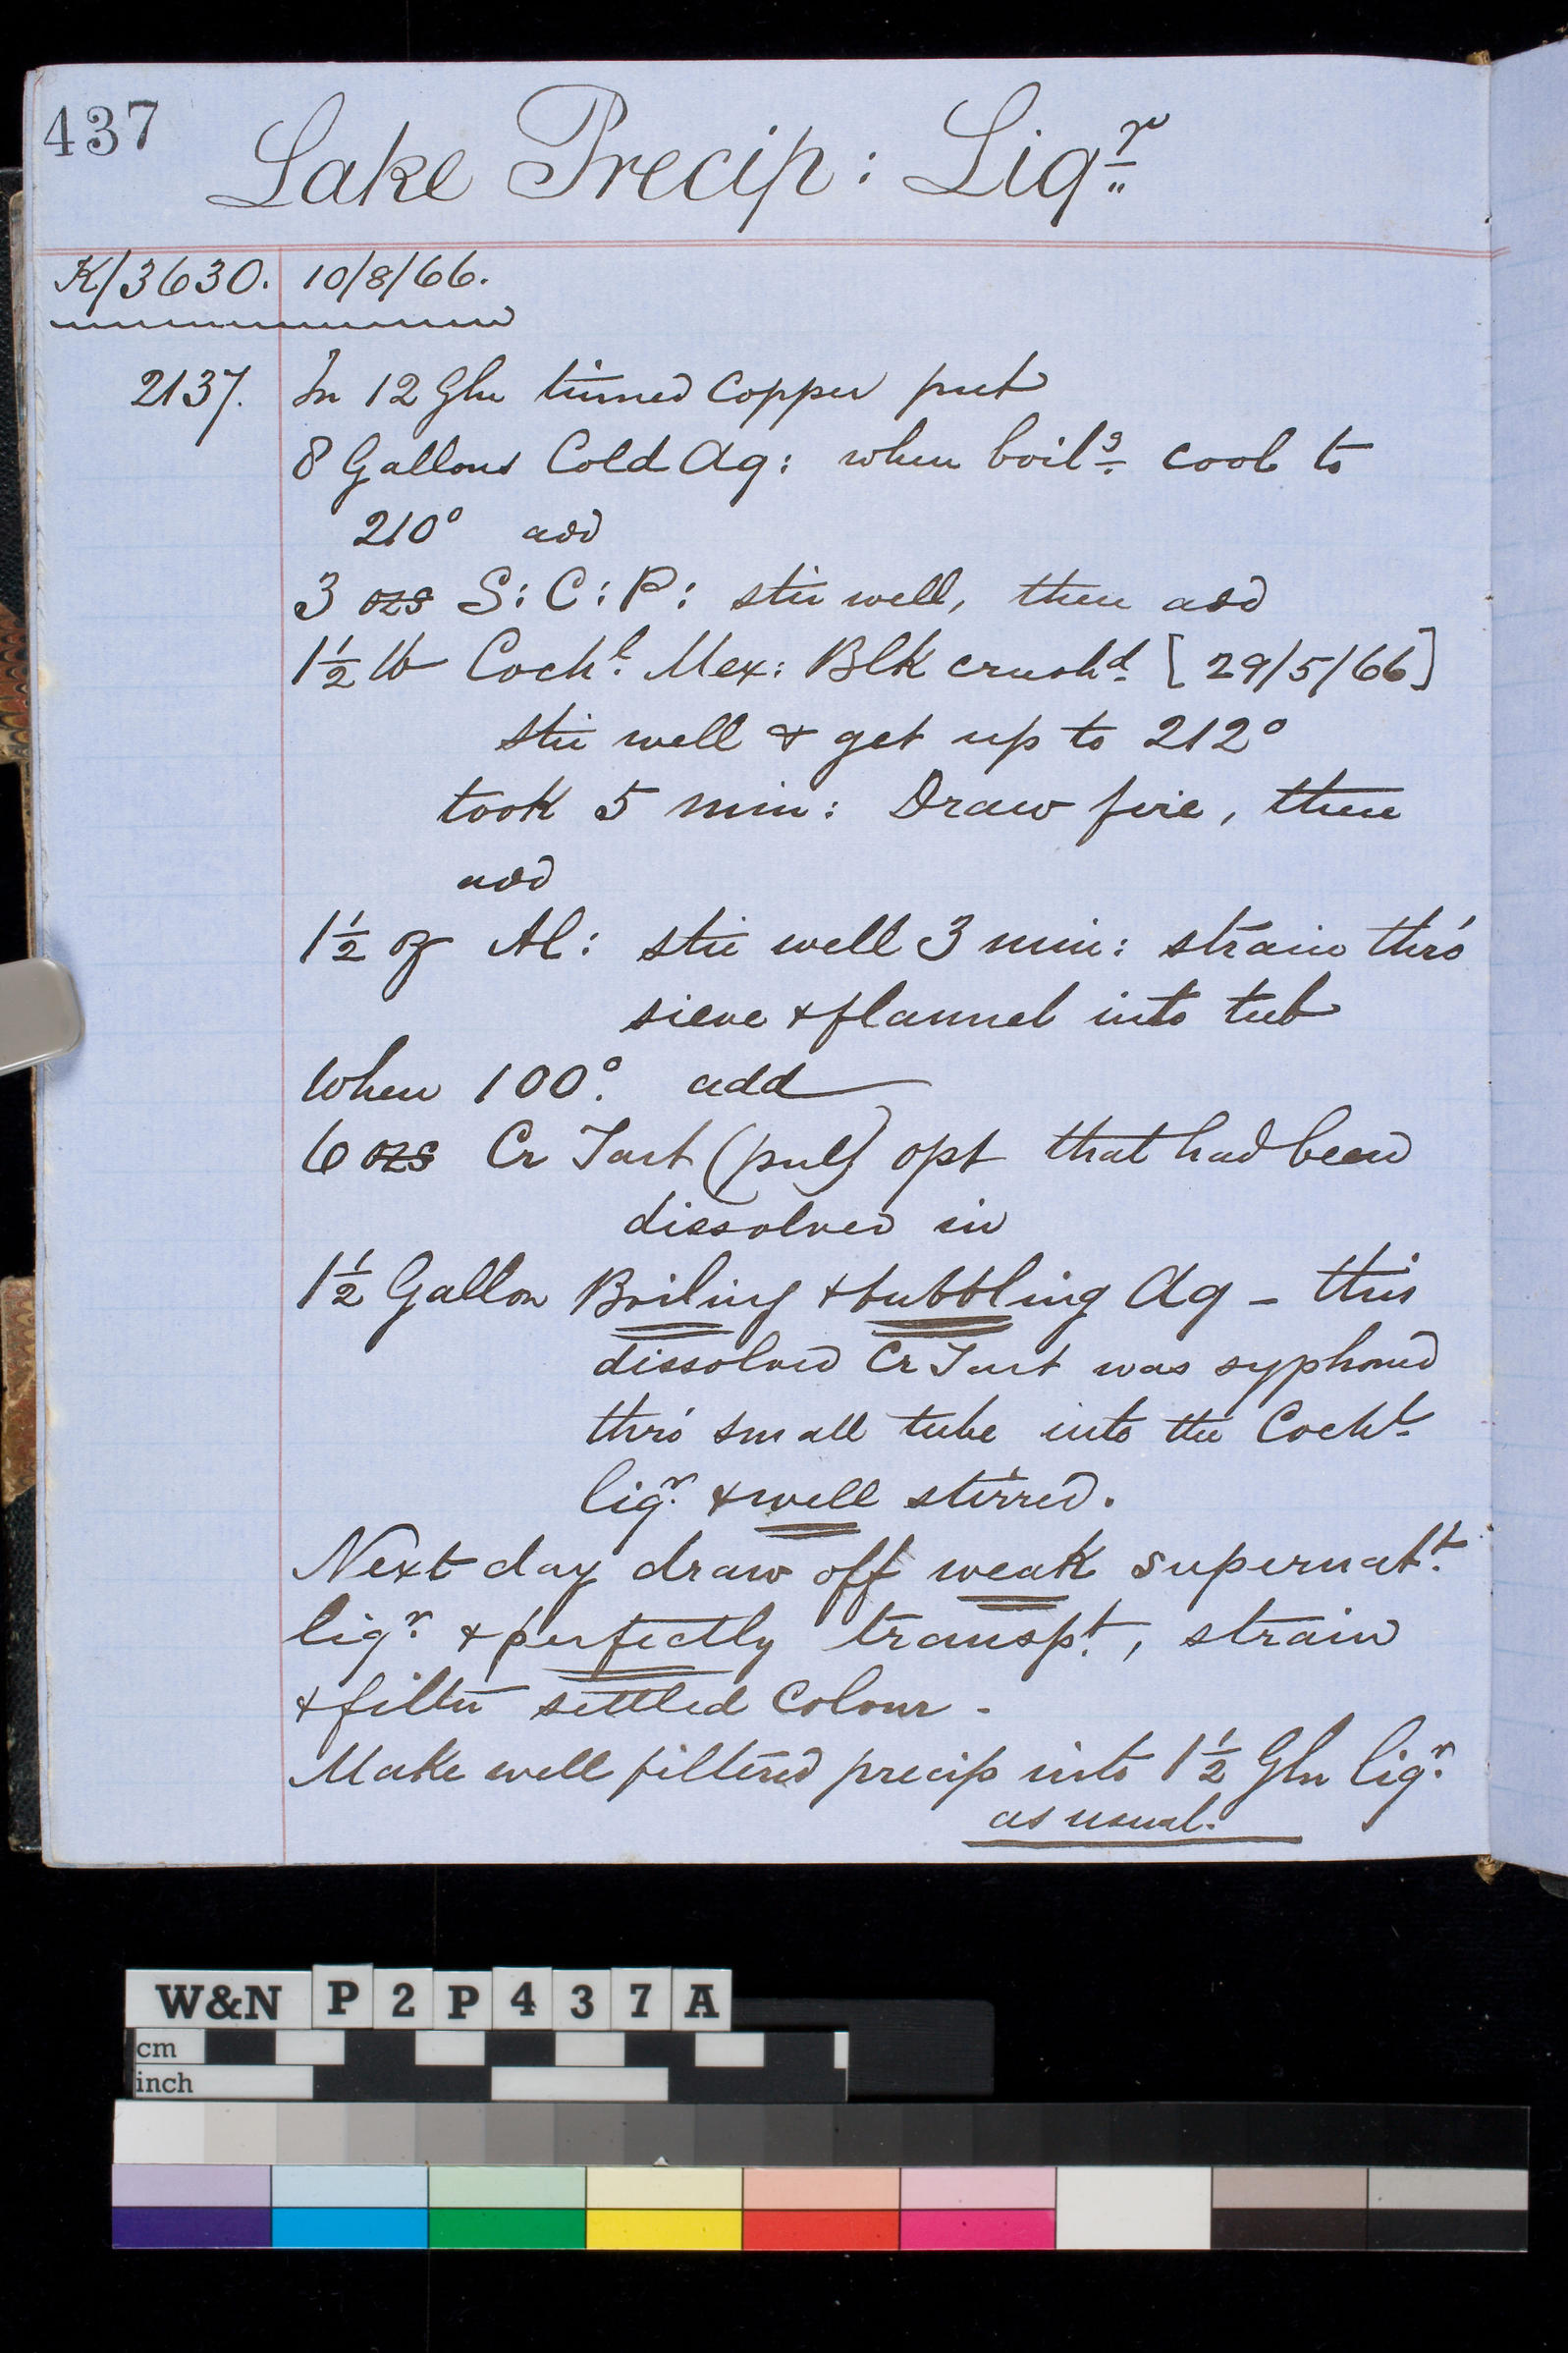 437
Lake Precip: Liqr
K/3630. 10/8/66.
2137. In 12 Gln tinned Copper put
8 Gallons Cold Aq: when boilg. cool to
210° add
3 ozs S: C: P: stir well, then add
1½ lb Cochl Mex: Blk crushd. [29/5/66]
stir well & get up to 212°
took 5 min: Draw fire, then
add
1½ oz Al: stir well 3 min: strain thro'
sieve & flannel into tub
When 100°. add
6 ozs Cr Tart (pulv) opt that had been
dissolved in
1½ Gallon Boiling & bubbling Aq – this
dissolved Cr Tart was syphoned
thro' small tube into the Cochl
liqr. & well stirred.
Next day draw off weak supernatt.
liqr. & perfectly transpt., strain
& filter settled Colour -
Make well filtered precip into 1½ Gln liqr.
as usual.
W&N P 2 P 4 3 7 A
cm
inch